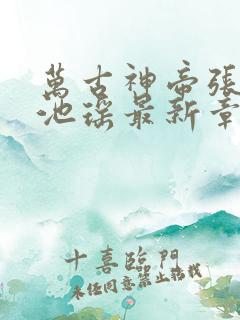 萬古神帝張
池瑤最新章
十喜臨門
未經同意禁止轉載